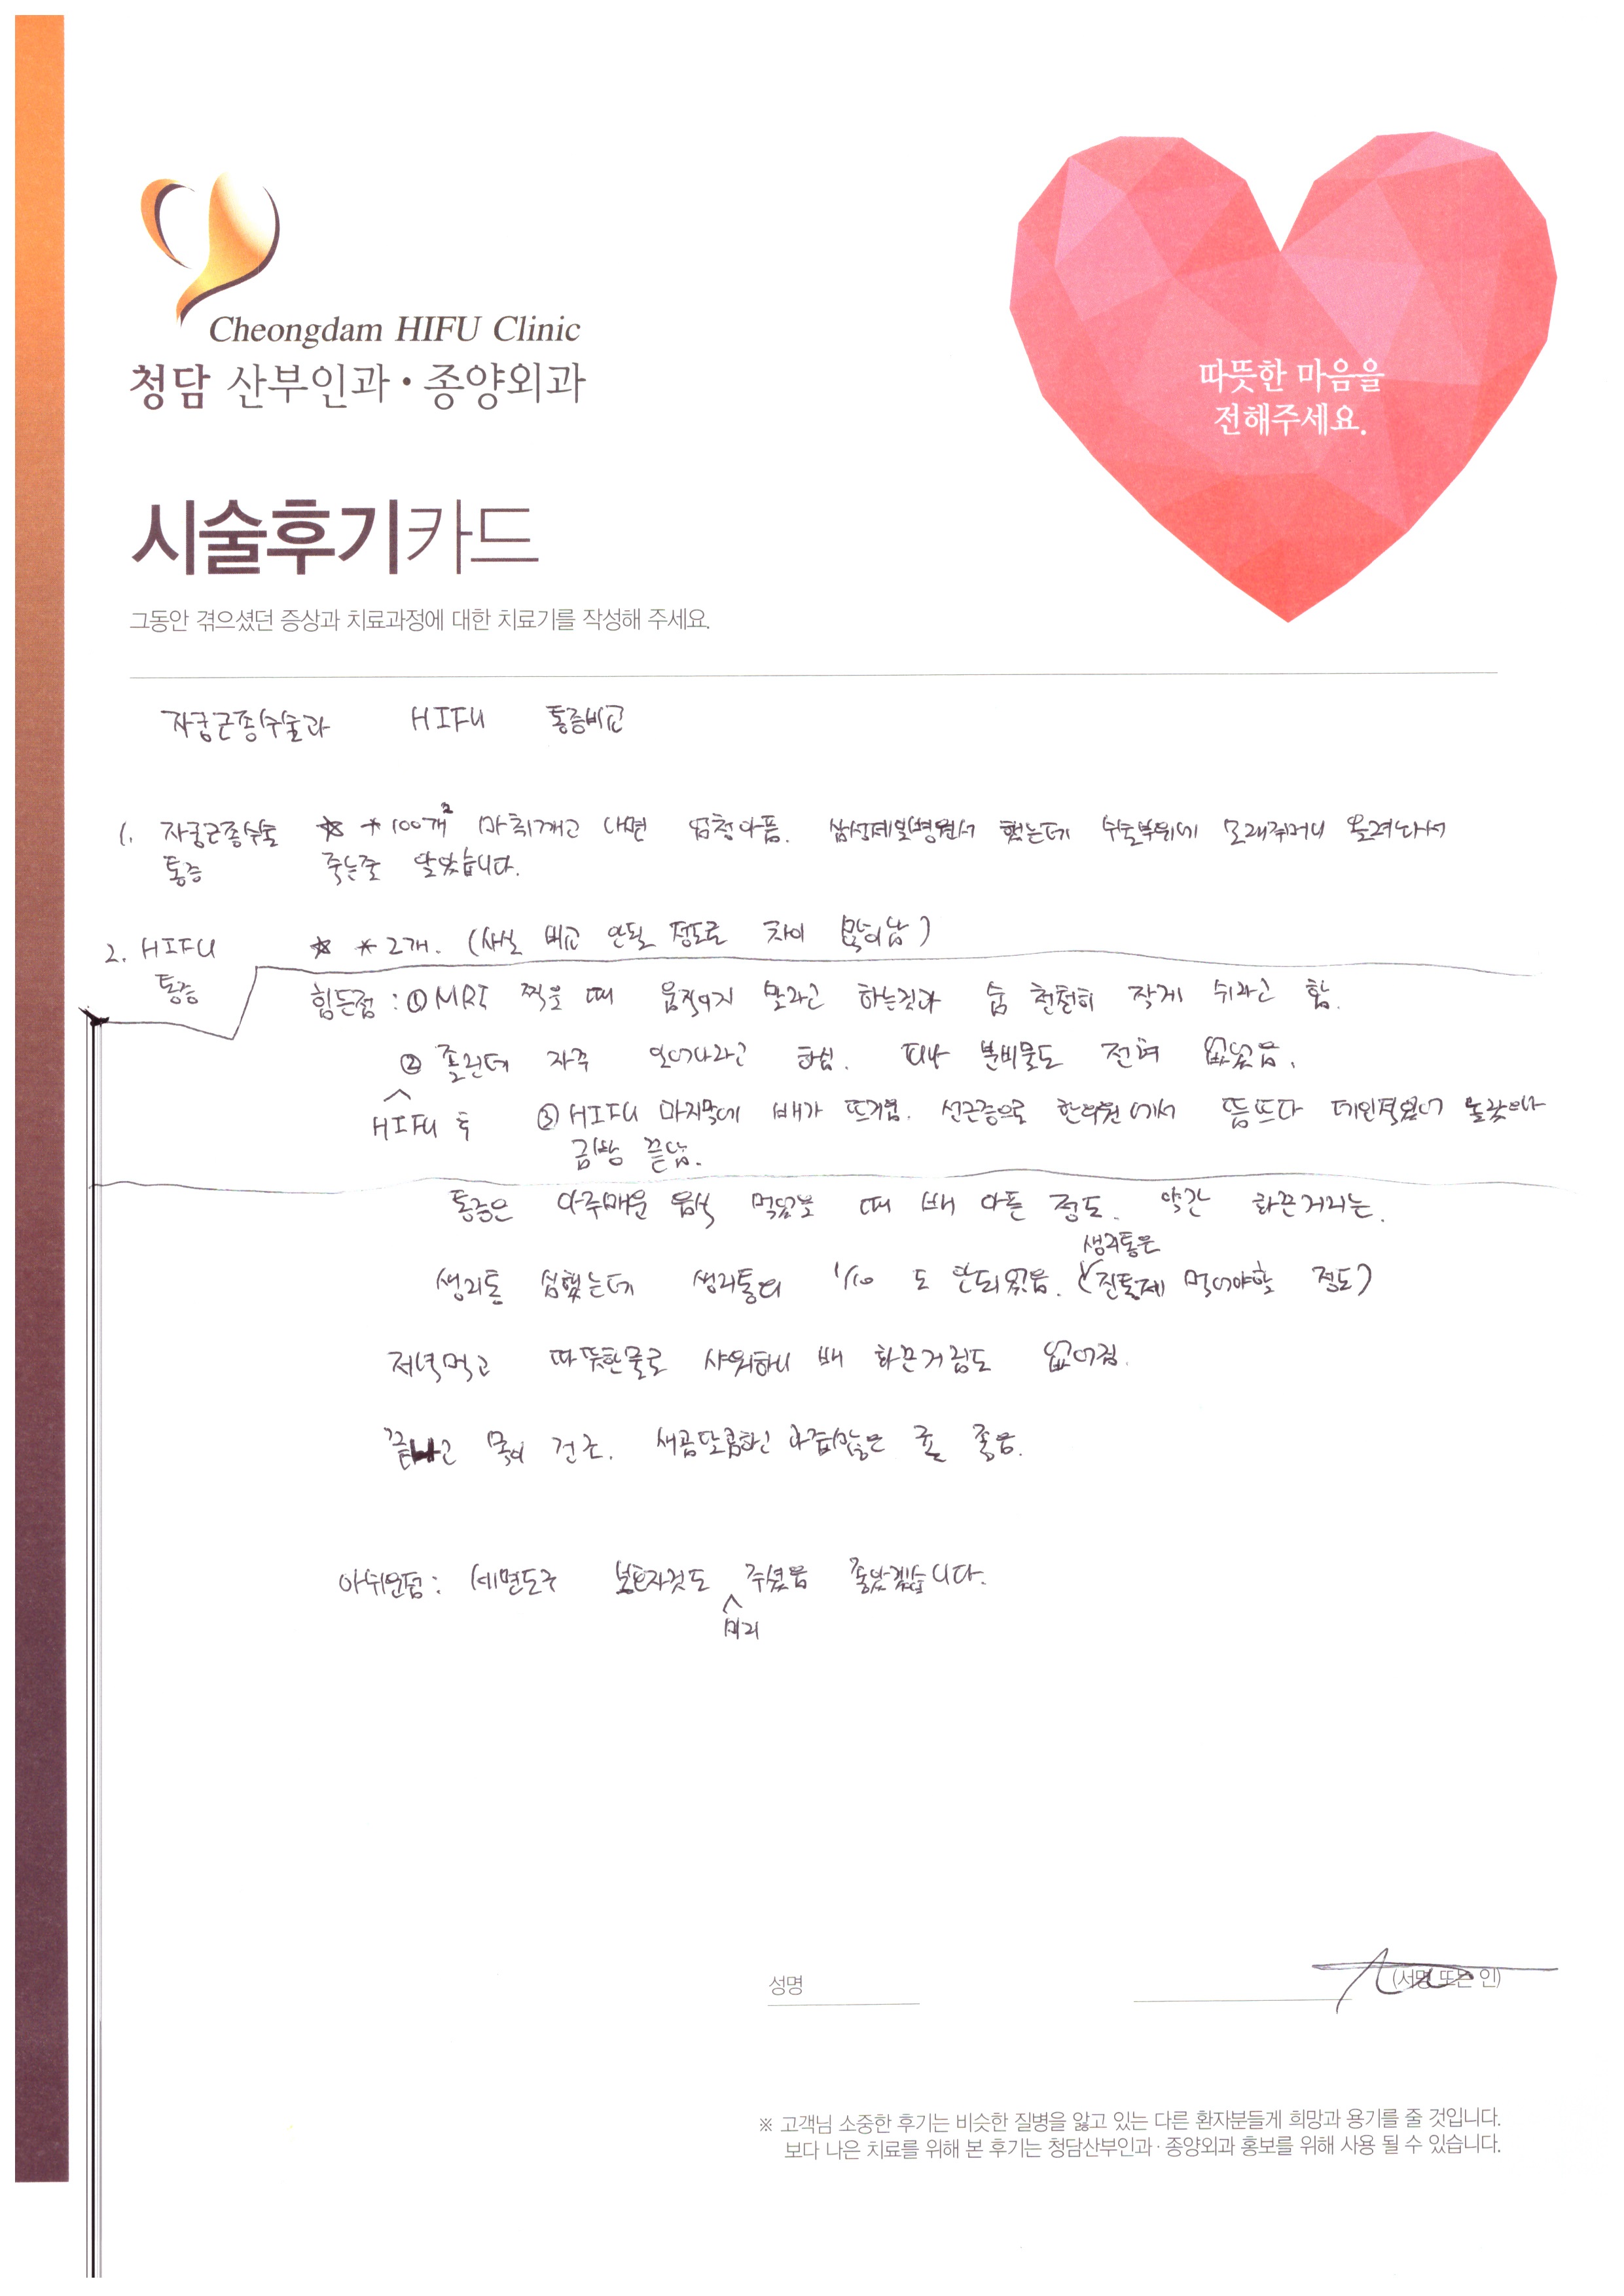 Cheongdam HIFU Clinic
청담 산부인과·종양외과
따뜻한 마음을
전해주세요.
시술후기카드
그동안 겪으셨던 증상과 치료과정에 대한 치료기를 작성해 주세요.
자궁근종수술과 HIFU 통증비교
1. 자궁근종수술 ☆ *100개² 마취깨고 나면 엄청아픔. 삼성제일병원서 했는데 수술부위에 모래주머니 올려놔서
통증 죽는줄 알았습니다.
2. HIFU ☆ *2개. (사실 비교 안될 정도로 차이 많이남)
통증
힘든점 : ① MRI 찍을 때 움직이지 말라고 하는것과 숨 천천히 작게 쉬라고 함.
② 졸린데 자꾸 일어나라고 하심. 피나 분비물도 전혀 없었음.
HIFU 후 ③ HIFU 마지막에 배가 뜨거움. 선근증으로 한의원에서 뜸뜨다 데인적있어 놀랐으나
금방 끝남.
통증은 아주매운 음식 먹었을 때 배 아픈 정도. 약간 화끈거리는.
생리통은
생리통 심했는데 생리통의 1/10 도 안되었음. (진통제 먹어야할 정도)
저녁먹고 따뜻한물로 샤워하니 배 화끈거림도 없어짐.
끝나고 목이 건조. 새콤달콤하고 과즙많은 귤 좋음.
아쉬운점 : 세면도구 보호자것도 주셨음 좋았겠습니다.
미리
성명
(서명 또는 인)
※ 고객님 소중한 후기는 비슷한 질병을 앓고 있는 다른 환자분들게 희망과 용기를 줄 것입니다.
보다 나은 치료를 위해 본 후기는 청담산부인과·종양외과 홍보를 위해 사용 될 수 있습니다.